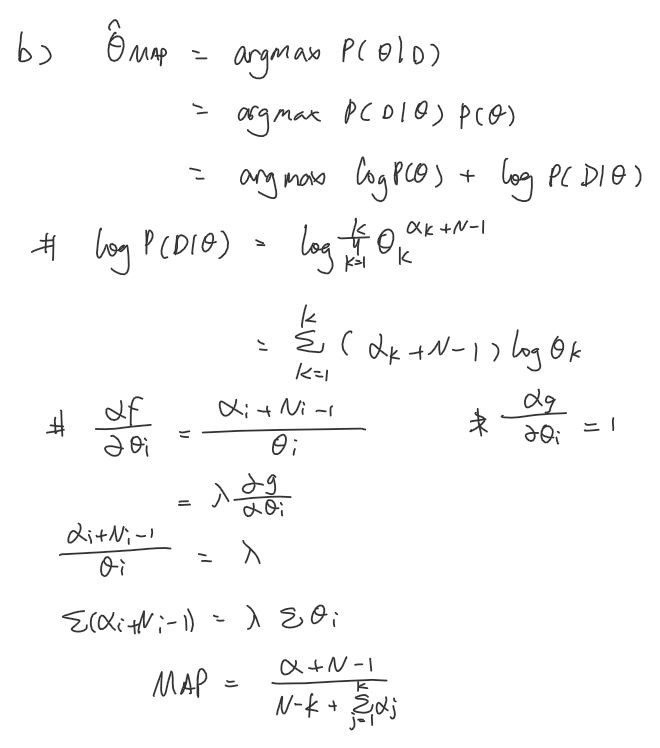 b) θ̂MAP = argmax P(θ|D)
= argmax P(D|θ) P(θ)
= argmax log P(θ) + log P(D|θ)
# log P(D|θ) = log ∏_{k=1}^{k} θ_k^{αk+N-1}
= Σ_{k=1}^{k} (αk+N-1) log θk
# ∂f/∂θi = (αi+Ni-1)/θi * ∂g/∂θi = 1
= λ ∂g/∂θi
(αi+Ni-1)/θi = λ
Σ(αi+Ni-1) = λ Σθi
MAP = (α+N-1)/(N-k+Σ_{j=1}^{k} αj)